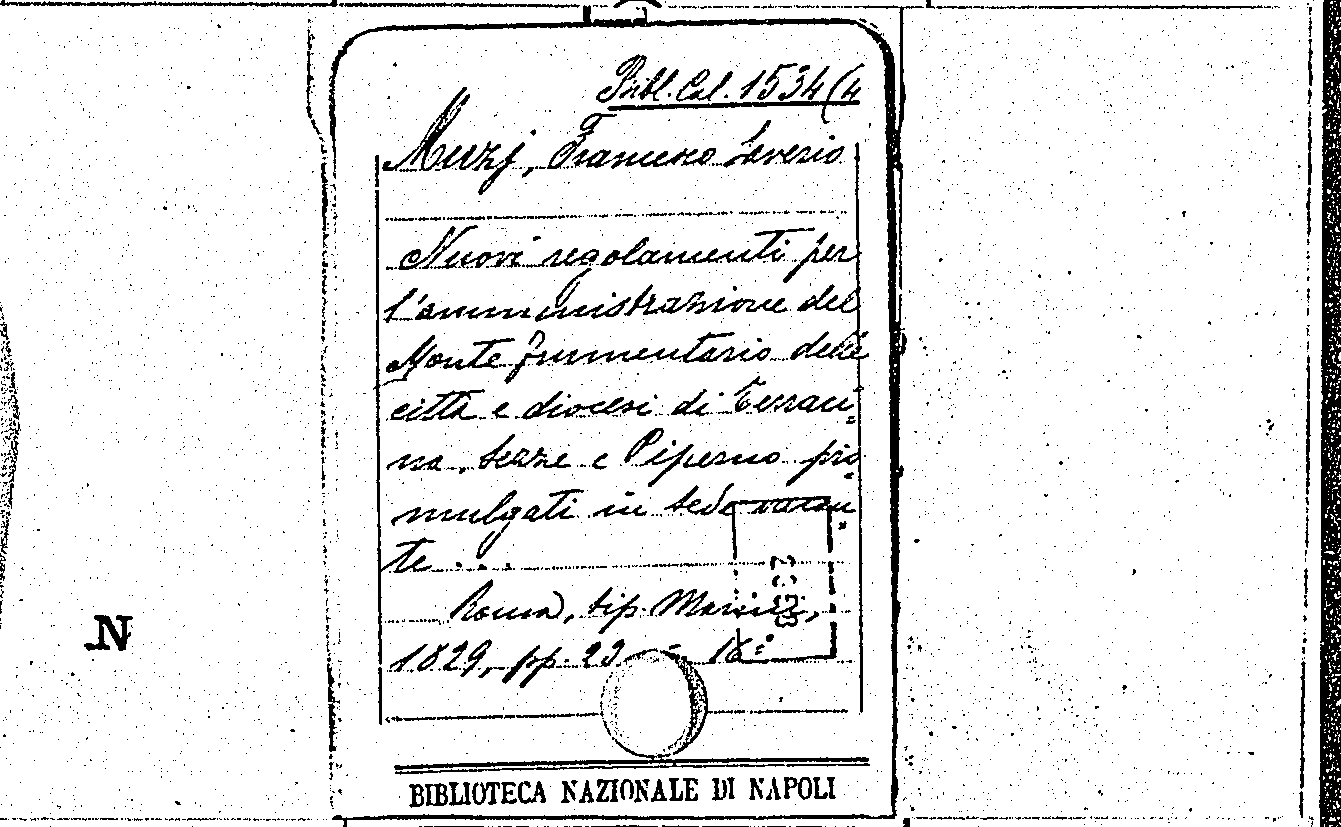 Bibl. Cal. 1534(4
Muzj, Francesco Saverio
Nuovi regolamenti per
l'amministrazione del
Monte frumentario delle
città e diocesi di Terraci=
na, Sezze e Piperno pro=
mulgati in sede vacan=
te ...
Roma, tip. Marini,
1829, pp. 23 - 16°
N
BIBLIOTECA NAZIONALE DI NAPOLI